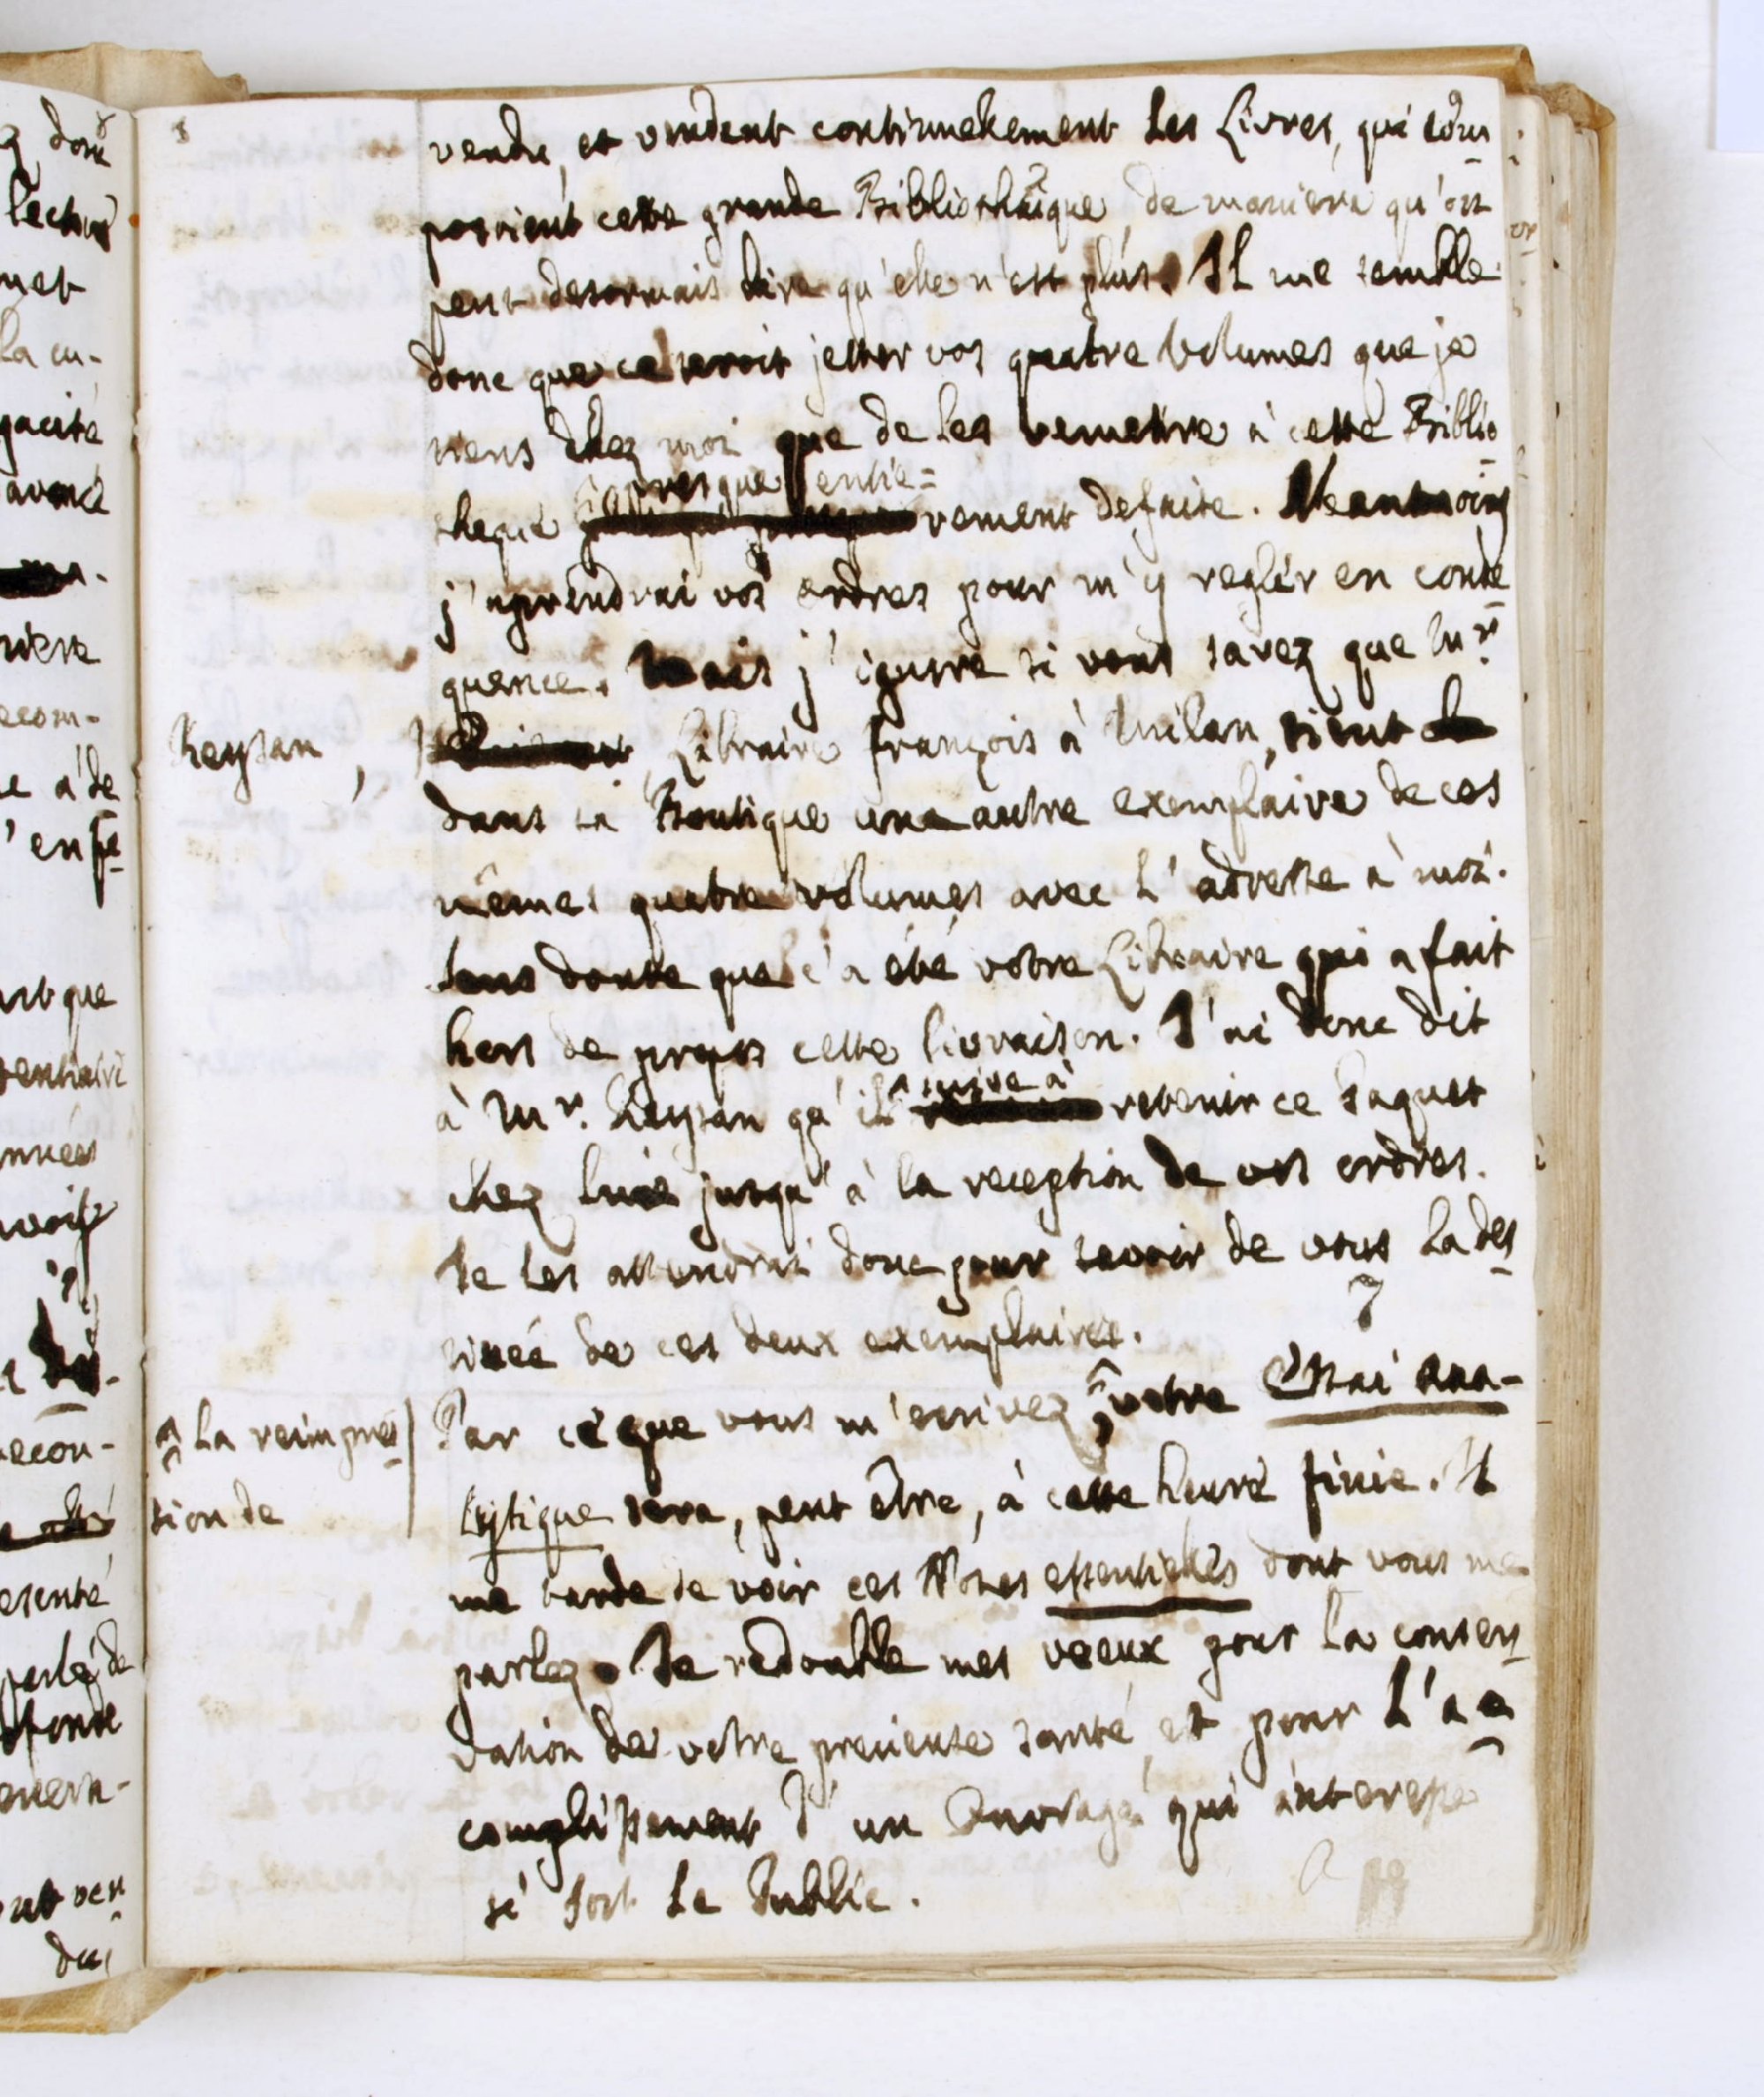 vendu, et vendent continuelement Les Livres, qui com
posoient cette grande Bibliotheique, de maniere qu'on
peut desormais dire qu'elle n'est plus. Il me semble
donc que ce seroit jetter vos quatre Volumes que je
tiens chez moi que de les remettre à cette Biblio
theque presque entie=
rement defaite. Neantmoins
j'aprendrai vos ordres pour m'y regler en conse
quence. Mais j'ignore si vous savez que Mr.
Reyzan, Libraire François à Milan, tient
dans sa Boutique une autre exemplaire de ces
mêmes quatre volumes avec L'adresse à moi.
Sans doute que ç'a été votre Libraire qui a fait
hors de propos cette livraison. J'ai donc dit
à Mr. Reyzan qu'il retenir ce Paquet
chez lui jusqu'à la reception de vos ordres.
Je les attendrai donc pour savoir de vous La des
tinée de ces deux exemplaires.
Par ce que vous m'ecrivez votre Essai Ana-
^ La reimpres
sion de
lytique sera, peut être, à cette heure finie. Il
me tarde de voir ces Notes essentieles dont vous me
parlez. Je redouble mes voeux pour La conser
vation de votre precieuse santé, et pour L'ac
complissement d'un Ouvrage qui interesse
si fort Le Public.
donc
lecture
met
la cu-
gacité
avoncé
niere
ecom-
e à de
recon-
esenté
parlé de
ont ven
du